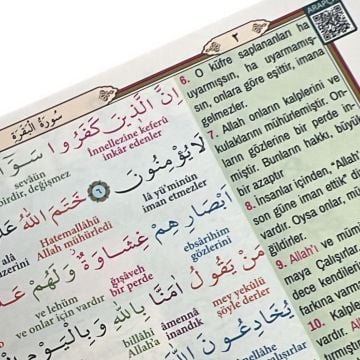 ARAPÇA
٢
سُورَةُ الْبَقَرَةِ
اِنَّ الَّذ۪ينَ كَفَرُوا سَوَٓا
İnnellezîne keferû
inkâr edenler
sevâün
birdir, değişmez
لَا يُؤْمِنُونَ ﴿٦﴾ خَتَمَ اللّٰهُ
lâ yü'minûn
iman etmezler
Hatemallâhü
Allah mühürledi
اَبْصَارِهِمْ غِشَاوَةٌ وَلَهُمْ
ebsârihim
gözlerini
ğışâveh
bir perde
ve lehüm
ve onlar için vardır
مَنْ يَقُولُ اٰمَنَّا بِاللّٰهِ وَبِالْيَوْمِ
mey yekûlü
şöyle derler
âmennâ
inandık
billâhi
Allah'a
يُخَادِعُونَ اللّٰهَ
6. O küfre saplananları ha
uyarmışsın, ha uyarmamış-
sın, onlara göre eşittir, imana
gelmezler.
7. Allah onların kalplerini ve
kulaklarını mühürlemiştir. On-
ların gözlerine bir perde in-
miştir. Bunların hakkı, büyük
bir azaptır.
8. İnsanlar içinden, "Allah
son güne iman ettik" di
vardır. Oysa onlar, m
ğildirler.
9. Allah'ı ve mümi
maya çalışırla
dece kendile
farkına varma
10. Kalpl
vardır.